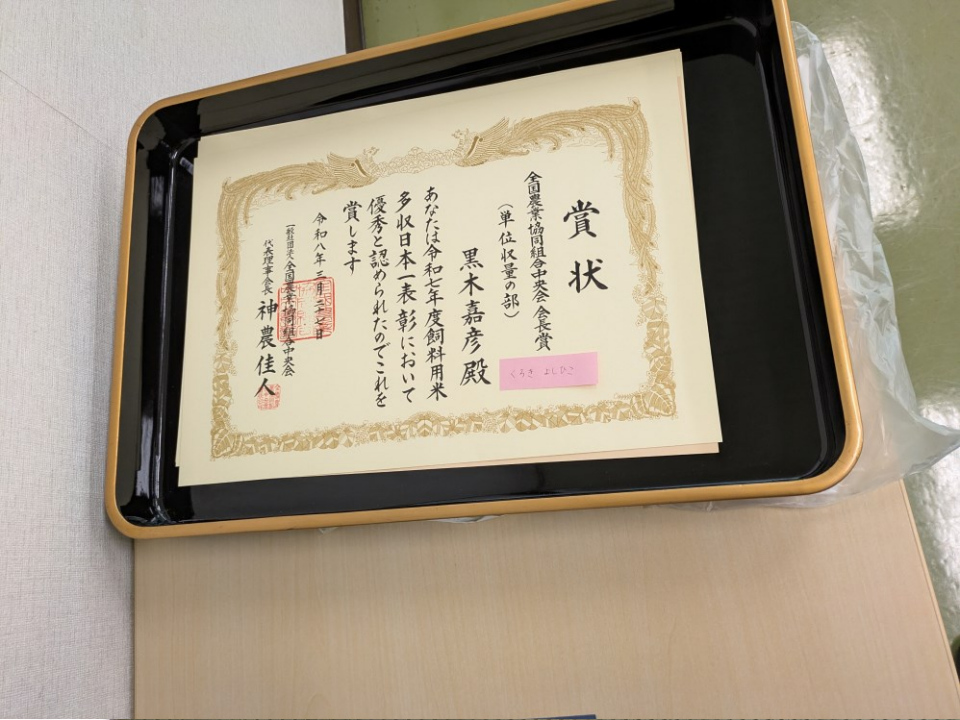 賞状
全国農業協同組合中央会 会長賞
（単位収量の部）
黒木嘉彦殿
くろき よしひこ
あなたは令和七年度飼料用米
多収日本一表彰において
優秀と認められたのでこれを
賞します
令和八年三月二十七日
一般社団法人全国農業協同組合中央会
代表理事会長 神農佳人